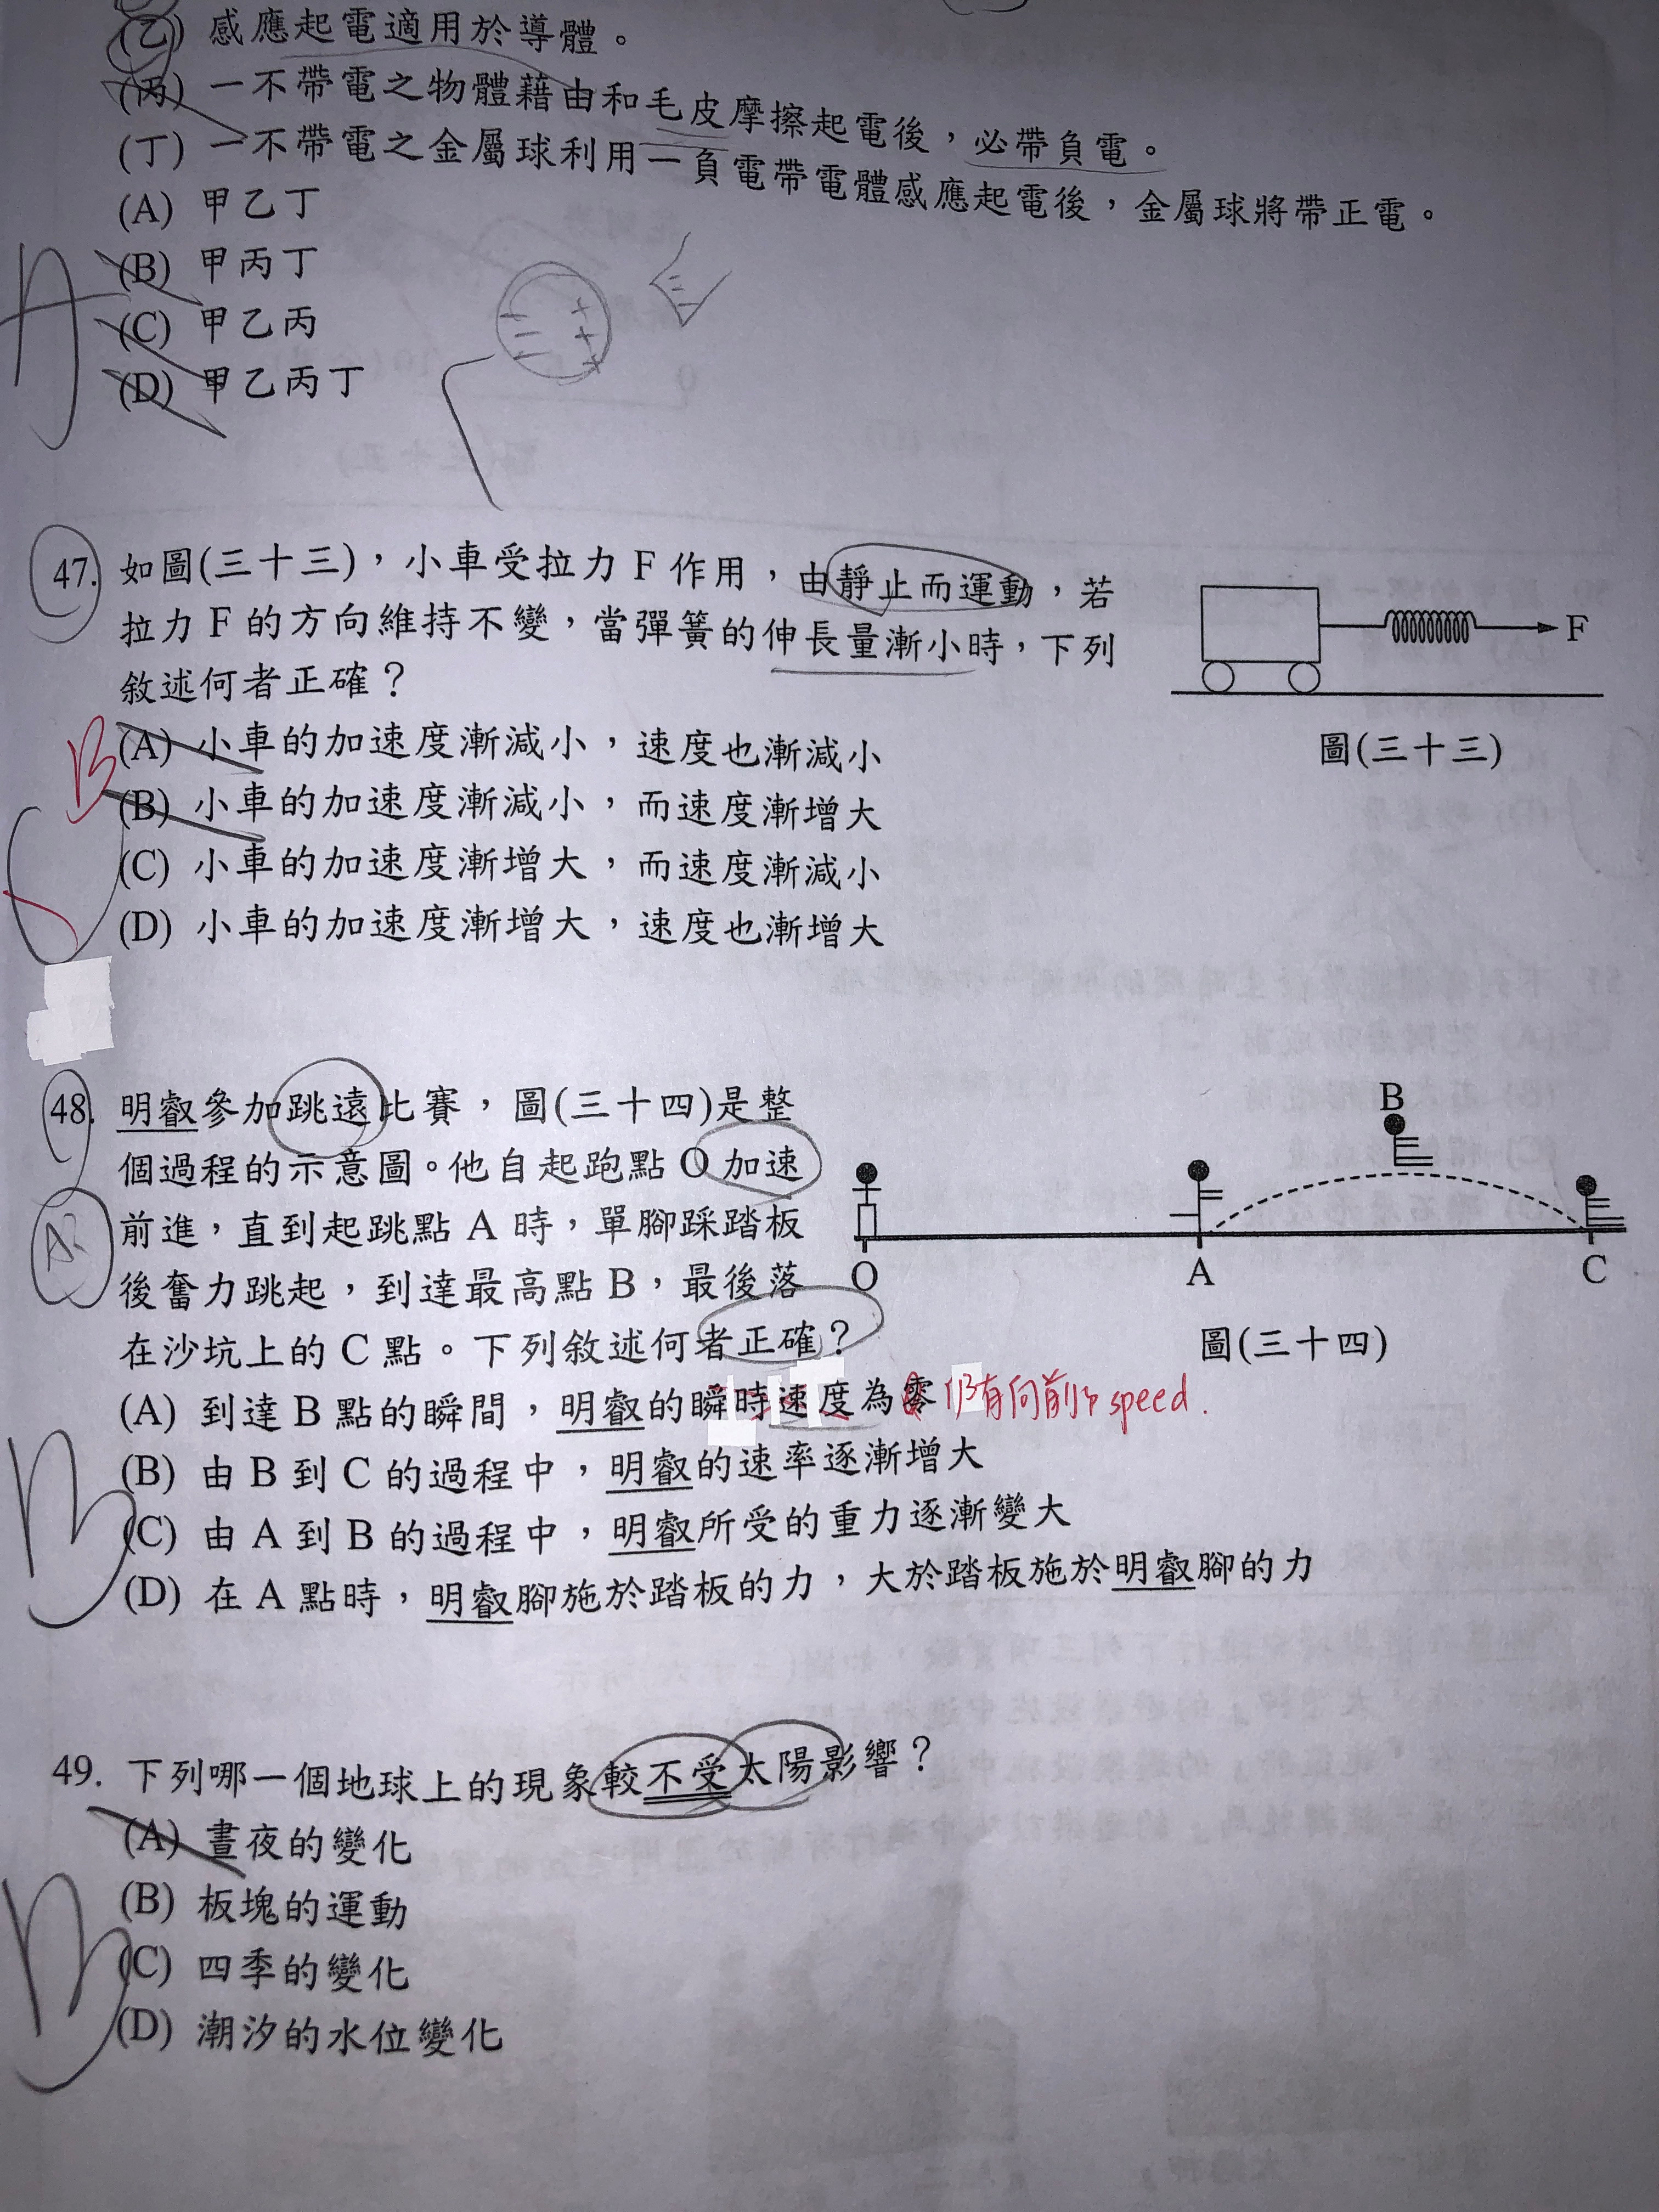 (乙) 感應起電適用於導體。
(丙) 一不帶電之物體藉由和毛皮摩擦起電後，必帶負電。
(丁) 一不帶電之金屬球利用一負電帶電體感應起電後，金屬球將帶正電。
(A) 甲乙丁
(B) 甲丙丁
(C) 甲乙丙
(D) 甲乙丙丁
A
47. 如圖(三十三)，小車受拉力 F 作用，由靜止而運動，若
拉力 F 的方向維持不變，當彈簧的伸長量漸小時，下列
敘述何者正確？
(A) 小車的加速度漸減小，速度也漸減小
(B) 小車的加速度漸減小，而速度漸增大
(C) 小車的加速度漸增大，而速度漸減小
(D) 小車的加速度漸增大，速度也漸增大
B
C
F
圖(三十三)
48. 明叡參加跳遠比賽，圖(三十四)是整
個過程的示意圖。他自起跑點 O 加速
前進，直到起跳點 A 時，單腳踩踏板
後奮力跳起，到達最高點 B，最後落
在沙坑上的 C 點。下列敘述何者正確？
A?
B
O
A
C
圖(三十四)
(A) 到達 B 點的瞬間，明叡的瞬時速度為零 仍有向前的 speed.
(B) 由 B 到 C 的過程中，明叡的速率逐漸增大
(C) 由 A 到 B 的過程中，明叡所受的重力逐漸變大
(D) 在 A 點時，明叡腳施於踏板的力，大於踏板施於明叡腳的力
B
49. 下列哪一個地球上的現象較不受太陽影響？
(A) 晝夜的變化
(B) 板塊的運動
(C) 四季的變化
(D) 潮汐的水位變化
B